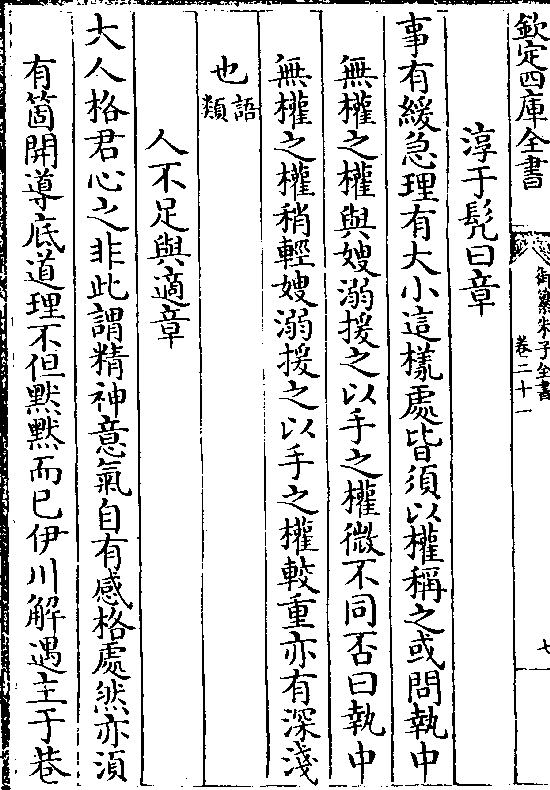 欽定四庫全書
御纂朱子全書
卷二十一
七
淳于髡曰章
事有緩急理有大小這樣處皆須以權稱之或問執中
無權之權與嫂溺援之以手之權微不同否曰執中
無權之權稍輕嫂溺援之以手之權較重亦有深淺
也語類
人不足與適章
大人格君心之非此謂精神意氣自有感格處然亦須
有箇開導底道理不但黙黙而已伊川解遇主于巷